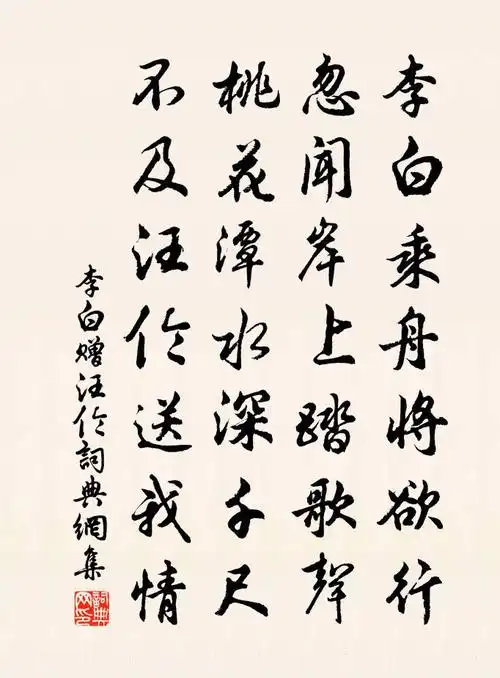 李白乘舟将欲行
忽闻岸上踏歌聲
桃花潭水深千尺
不及汪伦送我情
李白赠汪伦詞典網集
詞典網